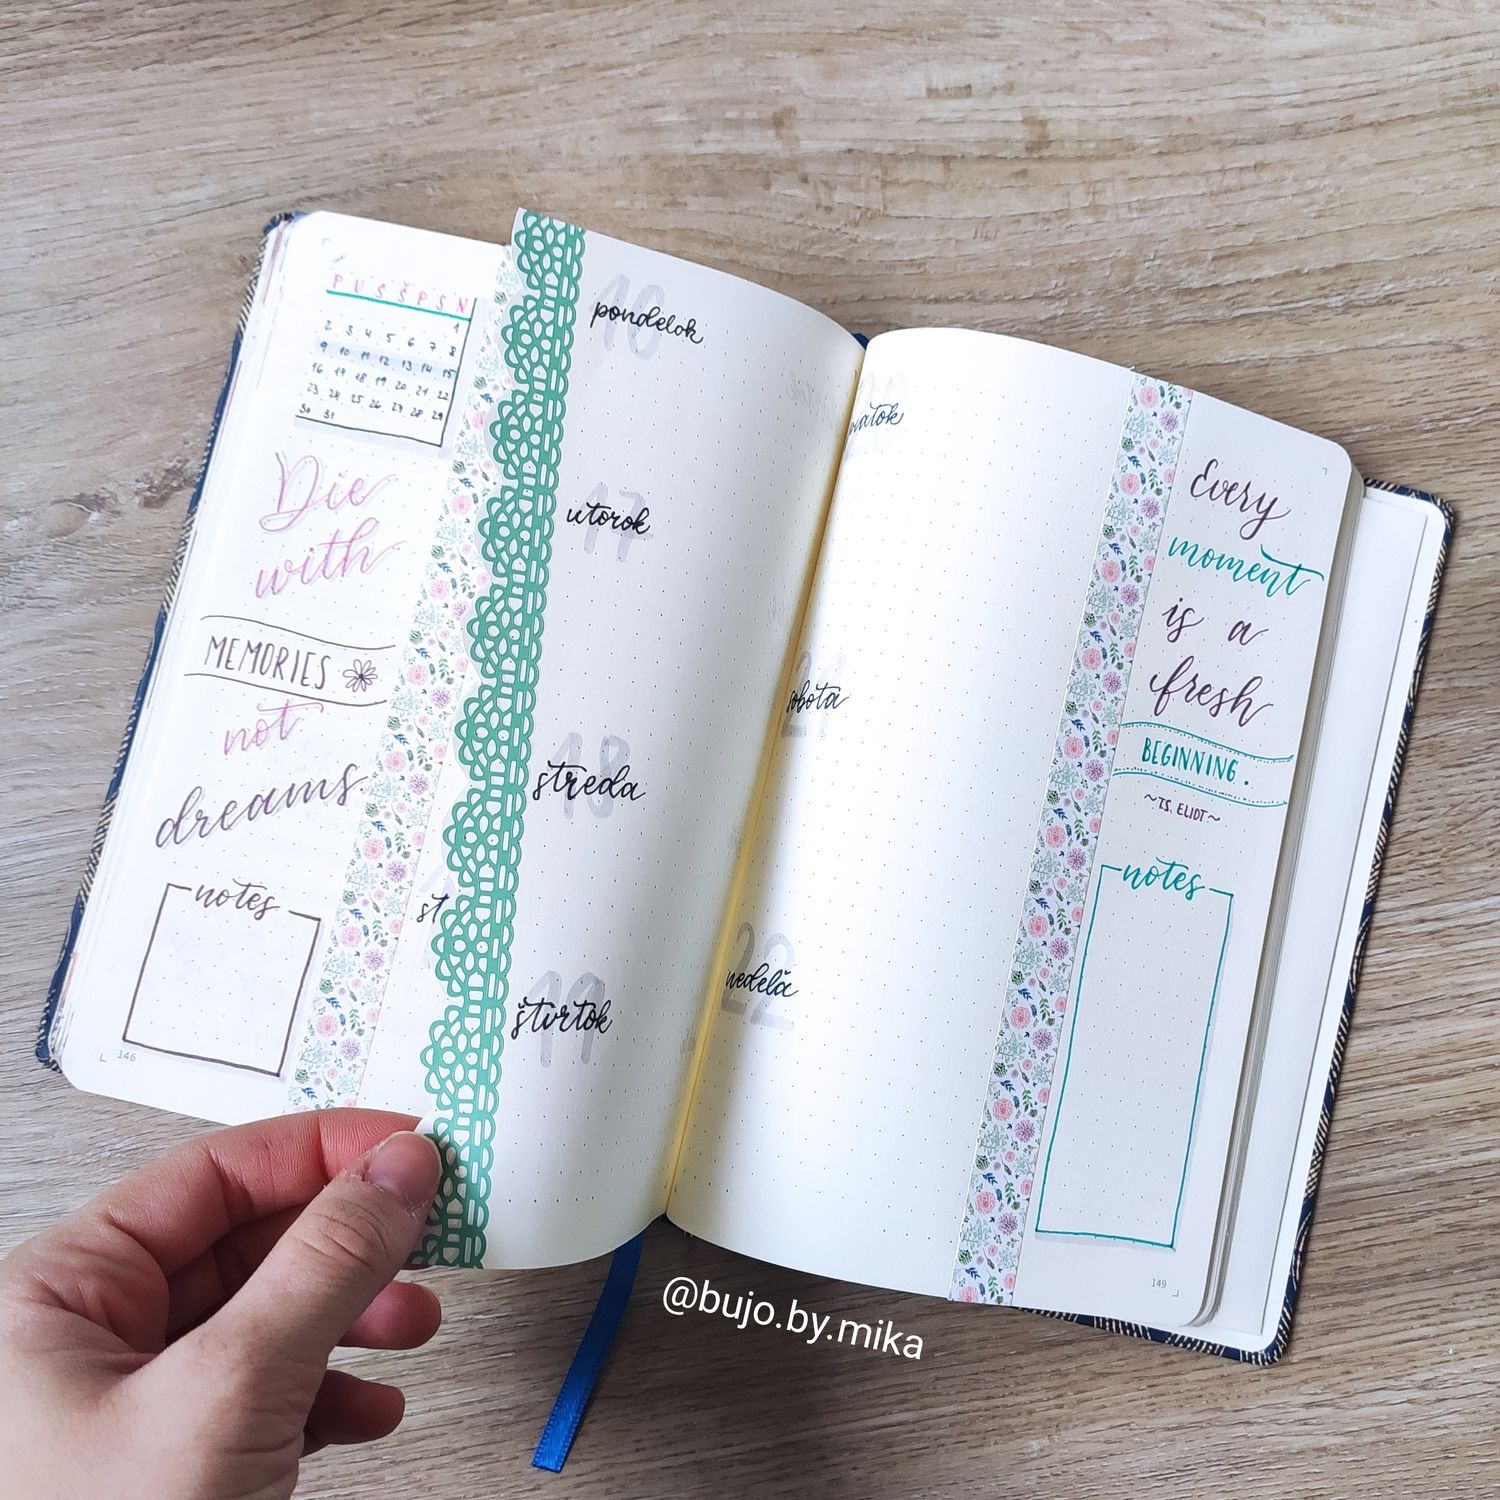 P U S Š P S N
1
2 3 4 5 6 7 8
9 10 11 12 13 14 15
16 17 18 19 20 21 22
23 24 25 26 27 28 29
30 31
Die
with
MEMORIES
not
dreams.
notes
146
16
pondelok
17
utorok
18
streda
19
štvrtok
st
20
21
sobota
22
nedeľa
Every
moment
is a
fresh
BEGINNING.
~T.S. ELIOT~
notes
149
@bujo.by.mika